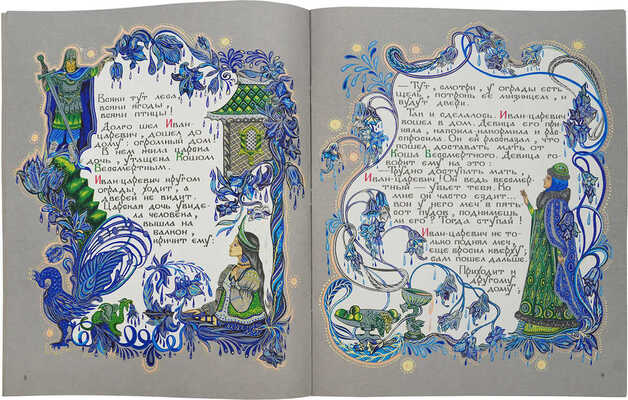 Всяки тут леса,
всяки ягоды,
всяки птицы!
Долго шел Иван-
царевич, дошел до
дому: огромный дом!
В нем жила царска
дочь, утащена Кошом
Бессмертным.
Иван-царевич кругом
ограды, ходит, а
дверей не видит.
Царская дочь увиде-
ла человека,
вышла на
балкон,
кричит ему:
— Тут, смотри, у ограды есть
щель, потронь ее мизинцем, и
будут двери.
Так и сделалось. Иван-царевич
вошел в дом. Девица его при-
няла, напоила-накормила и рас-
спросила. Он ей рассказал, что
пошел доставать мать от
Коша Бессмертного. Девица го-
ворит ему на это:
— Трудно доступать мать,
Иван-царевич! Он ведь бессмер-
тный — убьет тебя. Ко
мне он часто ездит...
вон у него меч в пять-
сот пудов, поднимешь
ли его? Тогда ступай!
Иван-царевич не то-
лько поднял меч,
еще бросил кверху;
сам пошел дальше.
Приходит к
другому
дому;